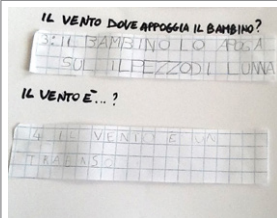 IL VENTO DOVE APPOGGIA IL BAMBINO?
3: IL BAMBINO LO APOGA
SUL ILPEZZODI LUNNA
IL VENTO È...?
4 IL VENTO E UN